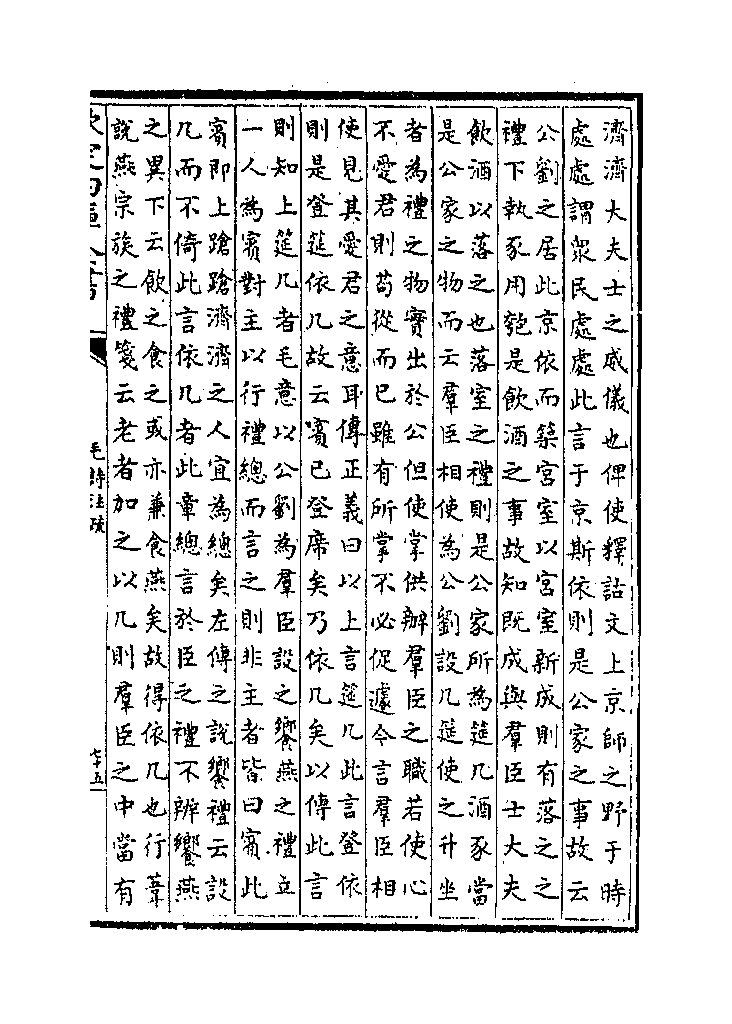 濟濟大夫士之威儀也俾使釋詁文上京師之野于時
處處謂衆民處處此言于京斯依則是公家之事故云
公劉之居此京依而築宮室以宮室新成則有落之之
禮下執豕用匏是飲酒之事故知既成與羣臣士大夫
飲酒以落之也落室之禮則是公家所為筵几酒豕當
是公家之物而云羣臣相使為公劉設几筵使之升坐
者為禮之物實出於公但使掌供辦羣臣之職若使心
不愛君則苟從而已雖有所掌不必促遽今言羣臣相
使見其愛君之意耳傳正義曰以上言筵几此言登依
則是登筵依几故云賓已登席矣乃依几矣以傳此言
則知上筵几者毛意以公劉為羣臣設之饗燕之禮立
一人為賓對主以行禮總而言之則非主者皆曰賓此
賓即上蹌蹌濟濟之人宜為總矣左傳之說饗禮云設
几而不倚此言依几者此章總言於臣之禮不辨饗燕
之異下云飲之食之或亦兼食燕矣故得依几也行葦
說燕宗族之禮箋云老者加之以几則羣臣之中當有
欽定四庫全書
毛詩注疏
七十五